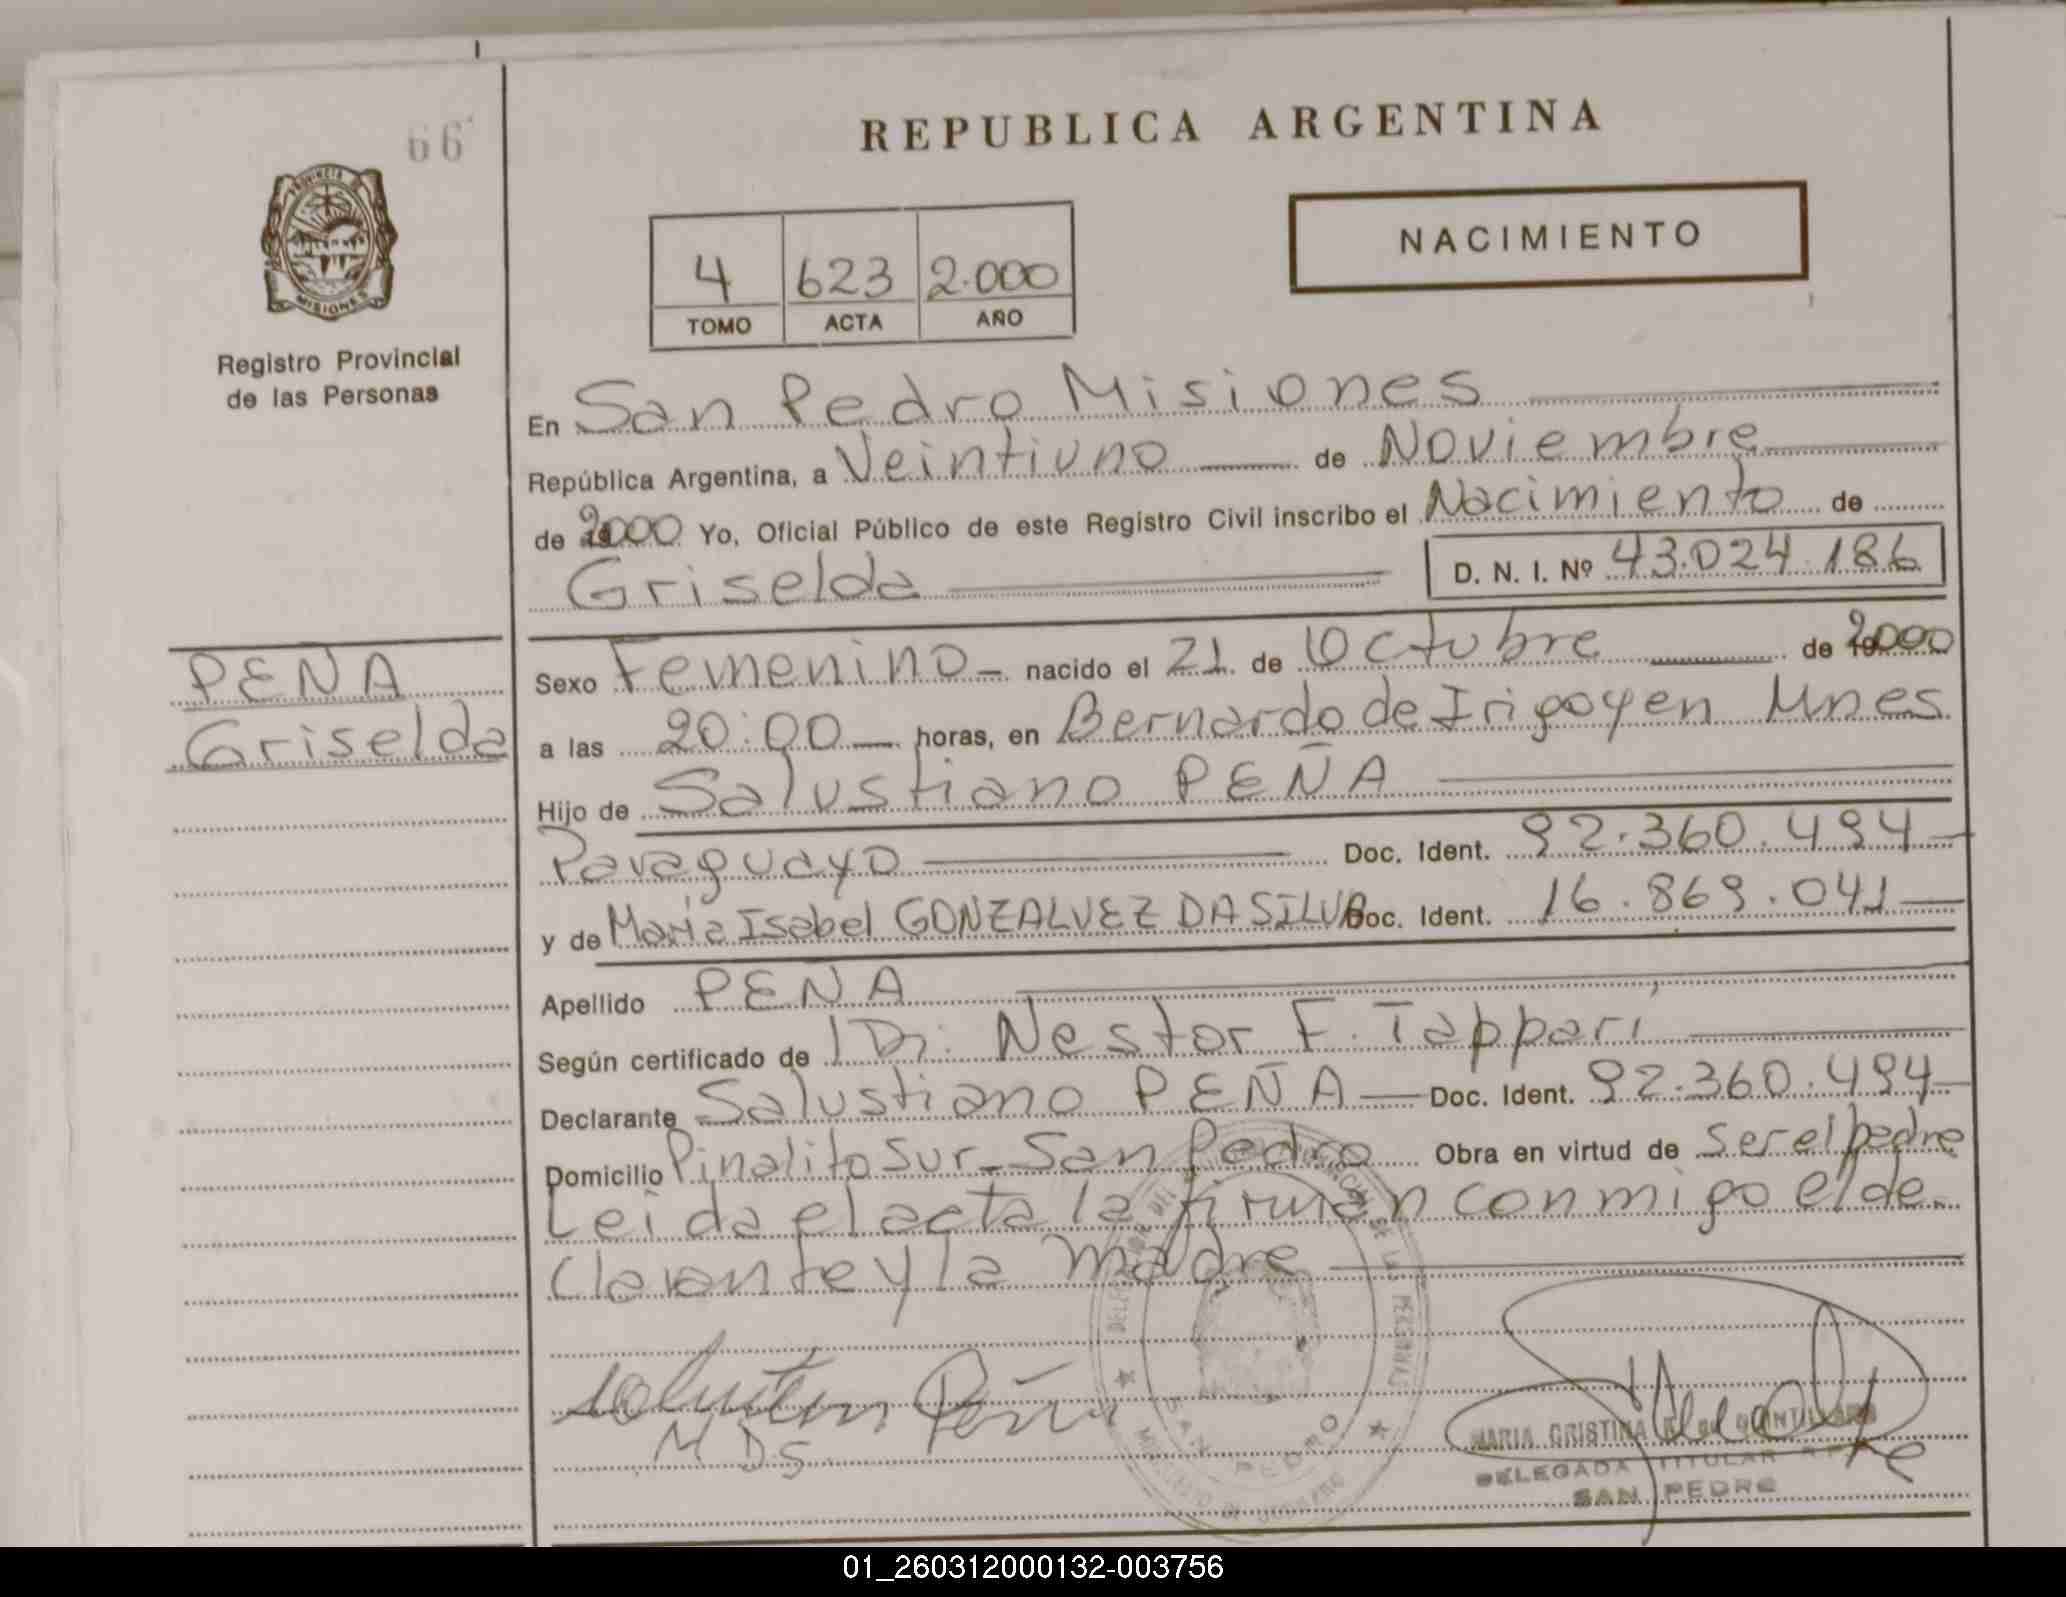 66
REPUBLICA ARGENTINA
PROVINCIA DE
MISIONES
Registro Provincial
de las Personas
4 623 2.000
TOMO ACTA AÑO
NACIMIENTO
En San Pedro Misiones
República Argentina, a Veintiuno de Noviembre
de 2000 Yo, Oficial Público de este Registro Civil inscribo el Nacimiento de
Griselda D. N. I. Nº 43.024.186
PEÑA
Griselda
Sexo Femenino nacido el 21 de Octubre de 2000
a las 20:00 horas, en Bernardo de Irigoyen Mnes
Hijo de Salustiano PEÑA
Paraguayo Doc. Ident. 92.360.494
y de Maria Isabel GONZALVEZ DA SILVA Doc. Ident. 16.869.041
Apellido PEÑA
Según certificado de Dr. Nestor F. Tappari
Declarante Salustiano PEÑA Doc. Ident. 92.360.494
Domicilio Pinalito Sur - San Pedro Obra en virtud de ser el padre
Leida el acta la firman conmigo el de
clarante y la madre
M D S
MARIA CRISTINA
DELEGADA TITULAR
SAN PEDRO
01_260312000132-003756